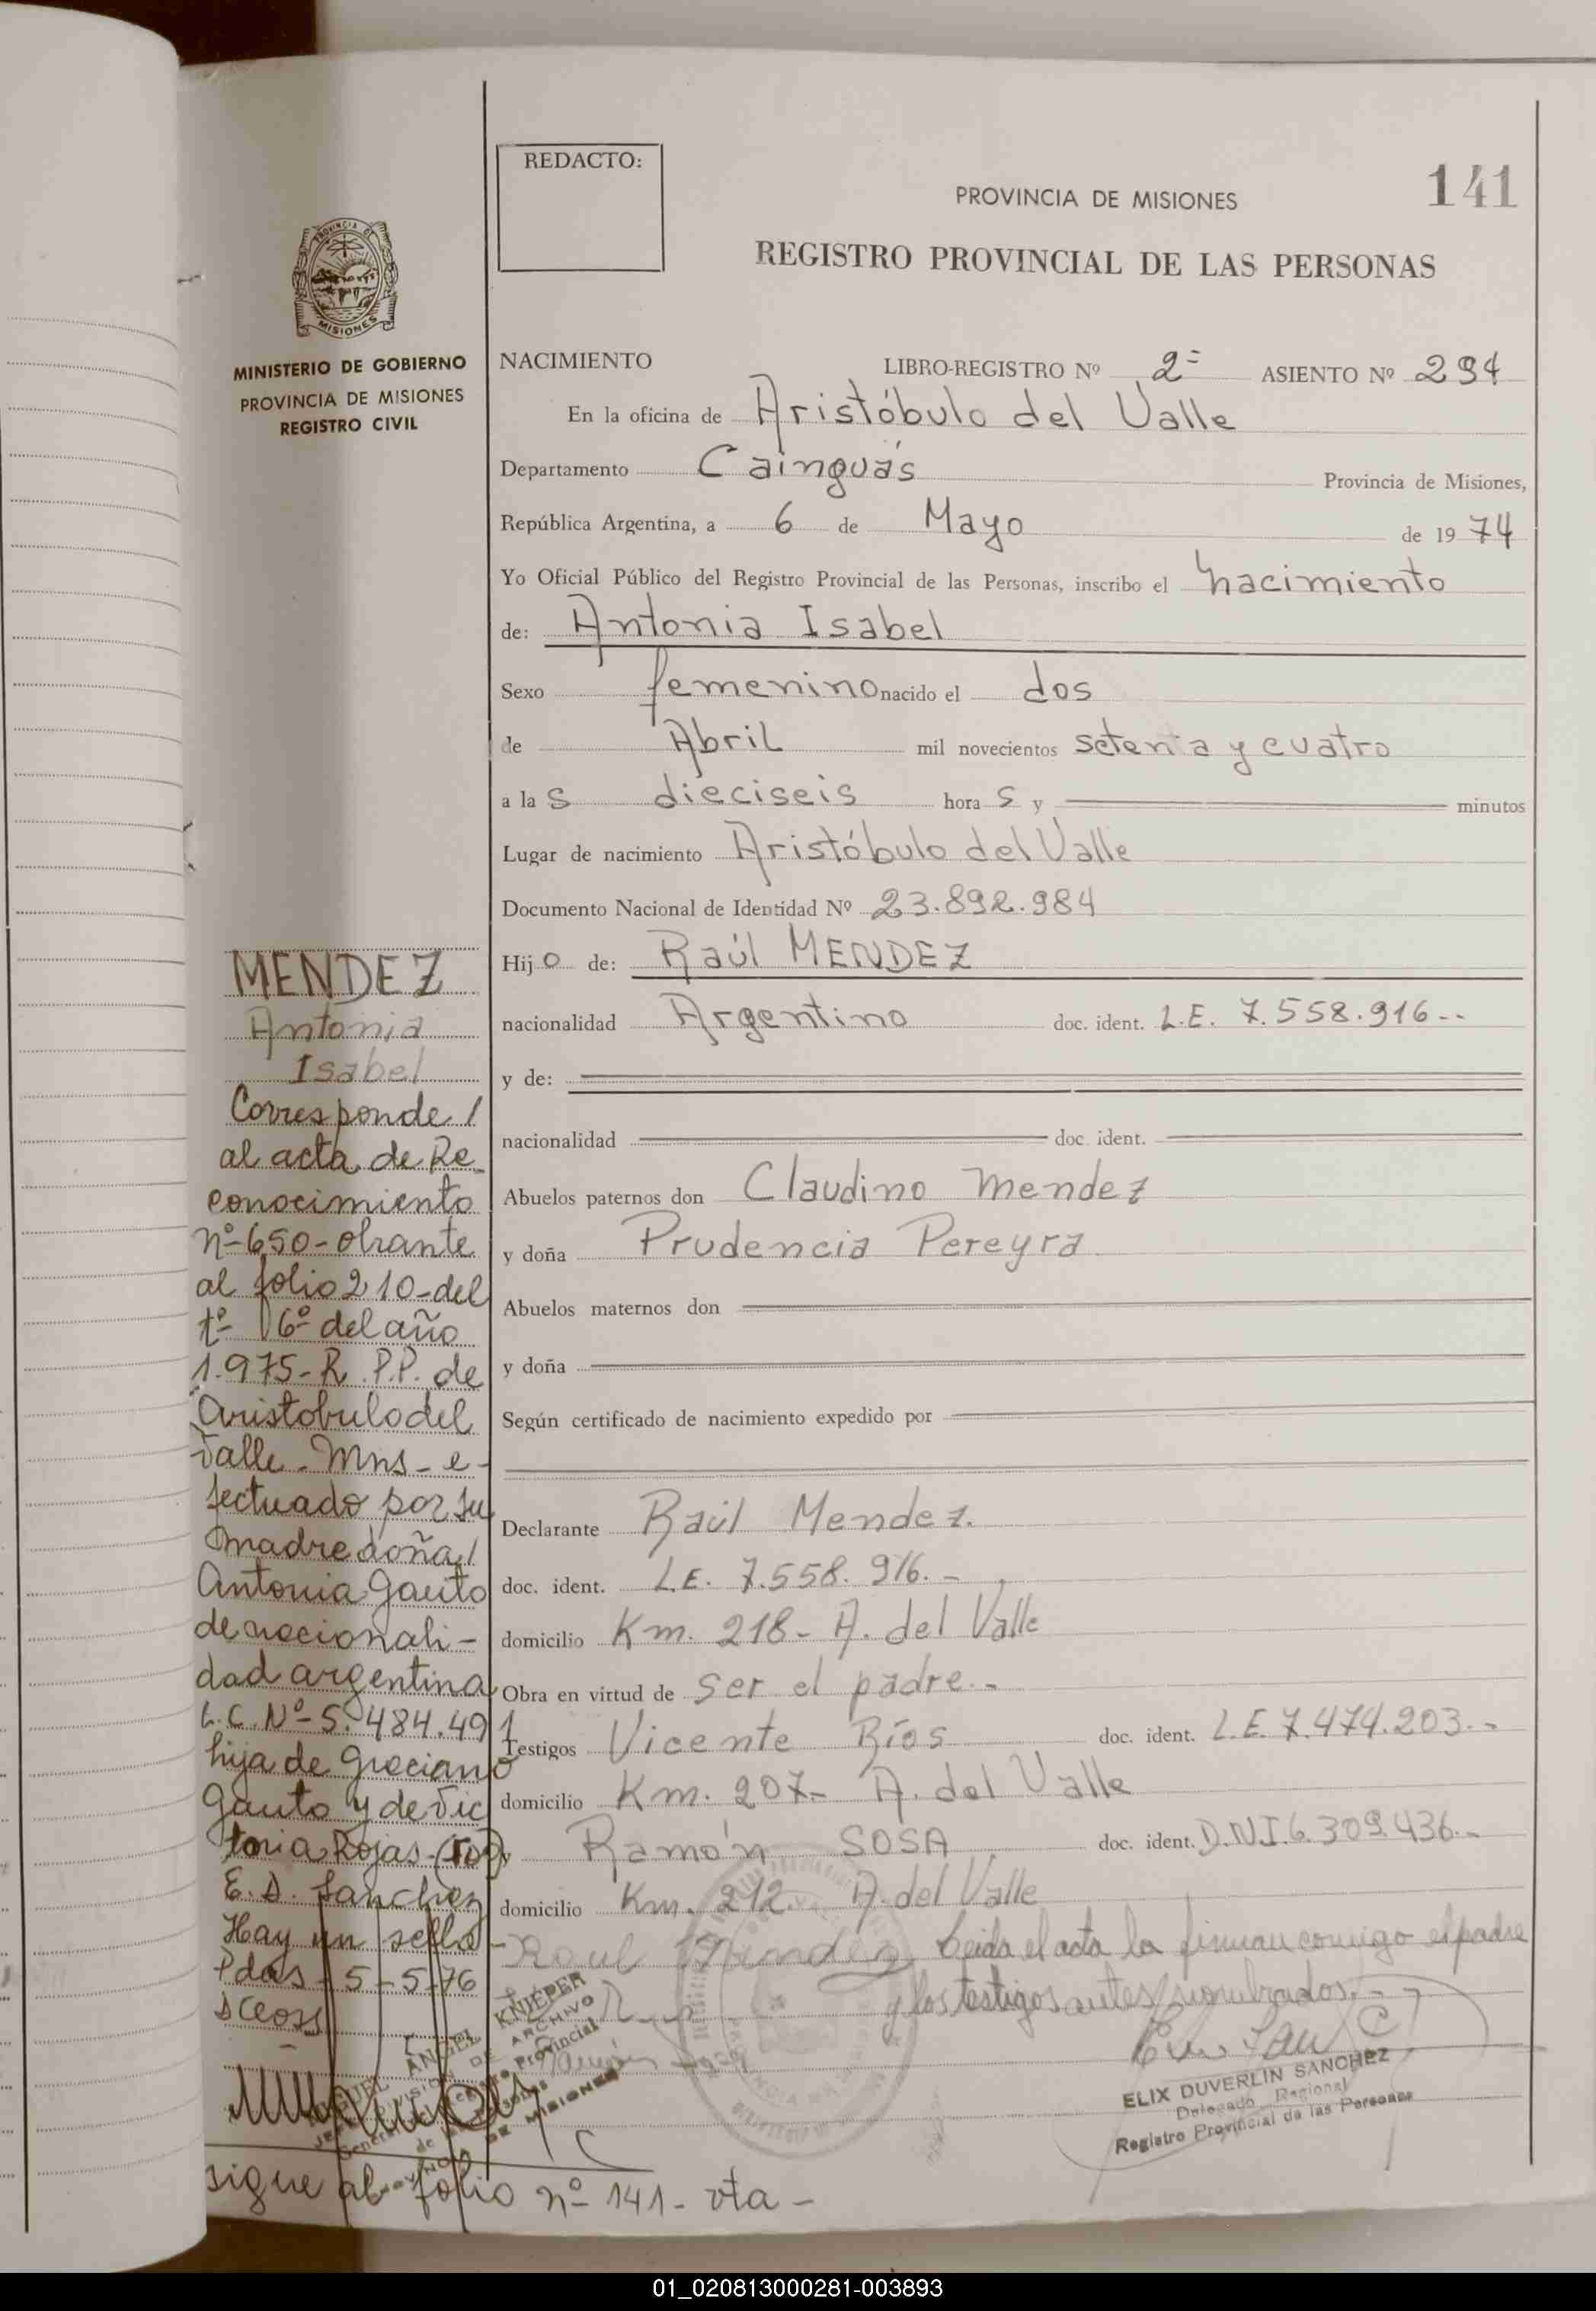 REDACTO:
141
PROVINCIA DE MISIONES
REGISTRO PROVINCIAL DE LAS PERSONAS
PROVINCIA DE
MISIONES
MINISTERIO DE GOBIERNO
PROVINCIA DE MISIONES
REGISTRO CIVIL
NACIMIENTO LIBRO-REGISTRO Nº 2º ASIENTO Nº 294
En la oficina de Aristóbulo del Valle
Departamento Cainguás Provincia de Misiones,
República Argentina, a 6 de Mayo de 1974
Yo Oficial Público del Registro Provincial de las Personas, inscribo el nacimiento
de: Antonia Isabel
Sexo femenino nacido el dos
de Abril mil novecientos setenta y cuatro
a las dieciseis horas y minutos
Lugar de nacimiento Aristóbulo del Valle
Documento Nacional de Identidad Nº 23.892.984
Hijo de: Raúl MENDEZ
nacionalidad Argentino doc. ident. L.E. 7.558.916--
y de:
nacionalidad doc. ident.
Abuelos paternos don Claudino Mendez
y doña Prudencia Pereyra
Abuelos maternos don
y doña
Según certificado de nacimiento expedido por
Declarante Raúl Mendez.
doc. ident. L.E. 7.558.916.-
domicilio Km. 218- A. del Valle
Obra en virtud de ser el padre.-
Testigos Vicente Ríos doc. ident. L.E. 7.474.203.-
domicilio Km. 207- A. del Valle
Ramón SOSA doc. ident. D.N.I. 6.309.436.-
domicilio Km. 212. A. del Valle
Raul Mendez Leida el acta la firman conmigo el padre
y los testigos antes nombrados.-
ELIX DUVERLIN SANCHEZ
Delegado Regional
Registro Provincial de las Personas
MENDEZ
Antonia
Isabel
Corresponde /
al acta de Re-
conocimiento
nº 650-obrante
al folio 210-del
tº 16º del año
1.975-R.P.P. de
Aristobulo del
Valle-Mns-e-
fectuado por su
madre doña/
Antonia Gauto
de nacionali-
dad argentina
L.C. Nº 5.484.491
hija de Greciano
Gauto y de Vic
toria Rojas-(Fdo)
E.D. Sanchez
Hay un sello-
Pdas-5-5-76
MIGUEL ANGEL KNIEPER
JEFE DIVISION DE ARCHIVO
General del Registro Provincial
de las Personas
PROVINCIA DE MISIONES
sigue al folio nº 141- vta-
01_020813000281-003893